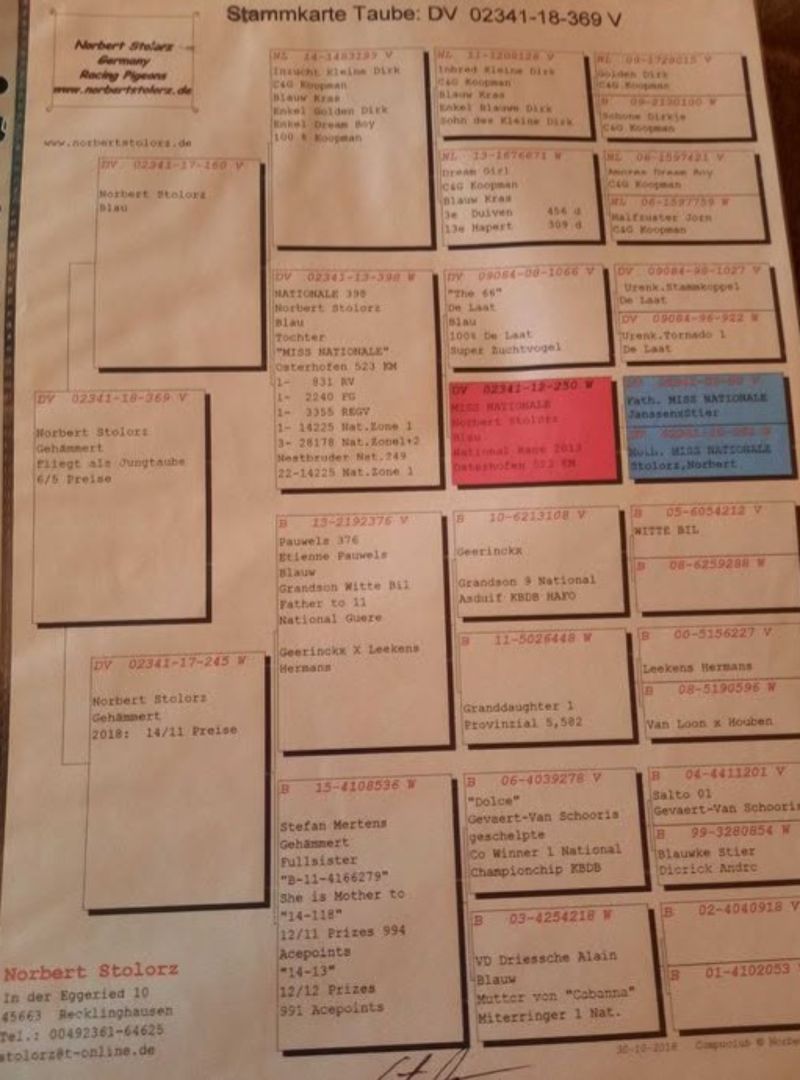 Stammkarte Taube: DV 02341-18-369 V
Norbert Stolorz
Germany
Racing Pigeons
www.norbertstolorz.de
www.norbertstolorz.de
DV 02341-18-369 V
Norbert Stolorz
Gehämmert
Fliegt als Jungtaube
6/5 Preise
DV 02341-17-160 V
Norbert Stolorz
Blau
DV 02341-17-245 W
Norbert Stolorz
Gehämmert
2018: 14/11 Preise
NL 14-1483199 V
Inzucht Kleine Dirk
C&G Koopman
Blauw Kras
Enkel Golden Dirk
Enkel Dream Boy
100 % Koopman
DV 02341-13-398 W
NATIONALE 398
Norbert Stolorz
Blau
Tochter
"MISS NATIONALE"
Osterhofen 523 KM
1- 831 RV
1- 2240 FG
1- 3355 REGV
1- 14225 Nat.Zone 1
3- 28178 Nat.Zone1+2
Nestbruder Nat.?49
22-14225 Nat.Zone 1
B 13-2192376 V
Pauwels 376
Etienne Pauwels
Blauw
Grandson Witte Bil
Father to 11
National Guere
Geerinckx X Leekens
Hermans
B 15-4108536 W
Stefan Mertens
Gehämmert
Fullsister
"B-11-4166279"
She is Mother to
"14-118"
12/11 Prizes 994
Acepoints
"14-13"
12/12 Prizes
991 Acepoints
NL 11-1208128 V
Inbred Kleine Dirk
C&G Koopman
Blauw Kras
Enkel Blauwe Dirk
Sohn des Kleine Dirk
NL 13-1676671 W
Dream Girl
C&G Koopman
Blauw Kras
3e Duiven 456 d
13e Hapert 309 d
DV 09084-00-1066 V
"The 66"
De Laat
Blau
100% De Laat
Super Zuchtvogel
DV 02341-12-250 W
MISS NATIONALE
Norbert Stolorz
Blau
National Rang 2013
Osterhofen 523 KM
B 10-6213108 V
Geerinckx
Grandson 9 National
Asduif KBDB HAFO
B 11-5026448 W
Granddaughter 1
Provinzial 5,582
B 06-4039278 V
"Dolce"
Gevaert-Van Schooris
geschelpte
Co Winner 1 National
Championchip KBDB
B 03-4254218 W
VD Driessche Alain
Blauw
Mutter von "Cabanna"
Miterringer 1 Nat.
NL 09-1729015 V
Golden Dirk
C&G Koopman
B 09-2130100 W
Schone Dirkje
C&G Koopman
NL 06-1597421 V
Amores Dream Boy
C&G Koopman
NL 06-1597759 W
Halfzuster Jorn
C&G Koopman
DV 09084-98-1027 V
Urenk.Stammkoppel
De Laat
DV 09084-96-922 W
Urenk.Tornado 1
De Laat
Fath. MISS NATIONALE
Janssen×Stier
Moth. MISS NATIONALE
Stolorz,Norbert
B 05-6054212 V
WITTE BIL
B 08-6259288 W
B 00-5156227 V
Leekens Hermans
B 08-5190596 W
Van Loon x Houben
B 04-4411201 V
Salto 01
Gevaert-Van Schooris
B 99-3280854 W
Blauwke Stier
Dierick Andre
B 02-4040918 V
B 01-4102053
Norbert Stolorz
In der Eggeried 10
45663 Recklinghausen
Tel.: 00492361-64625
stolorz@t-online.de
30-10-2018 Compuclub © Norbe